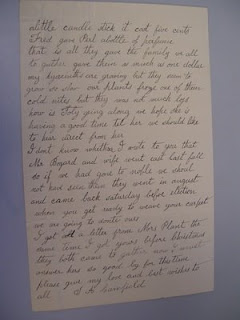 alittle candle stick it cost five cents
Fred gave Perl abottle of perfumie
that is all they gave the family we all
to gather gave them as much as one dollar
my hyacinths are growing but they seem to
grow so slow our plants froze one of them
cold nites but they was not much
how is Toty going along we hope she is
having a good time tel her we should like
to hear direct from her
I dont know whether I wrote to you that
Mr Bogard and wife went east last fall
so if we had gone to noble we should
not had seen them they went in august
and came back saturday before election
when you get redy to weave your carpet
we are going to write
I got a letter from Mrs Plant the
same time I got yours before Christmas
they both came to gather now I must
answer hers so good by for this time
please give my love and best wishes to
all S A